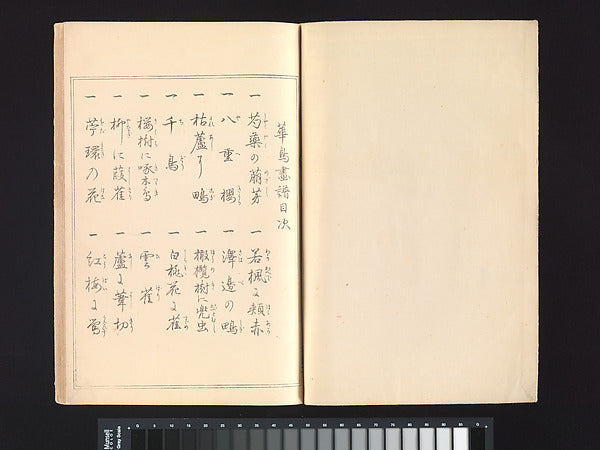 華鳥畫譜目次
一 芍藥の萠芽
一 八重櫻
一 枯蘆に鴫
一 千鳥
一 櫻樹に啄木鳥
一 柳に葭雀
一 苧環の花
一 若楓に頬赤
一 澤邊の鴫
一 橄欖樹に兜虫
一 白桃花に雀
一 雲雀
一 蘆に葦切
一 紅梅に鶯